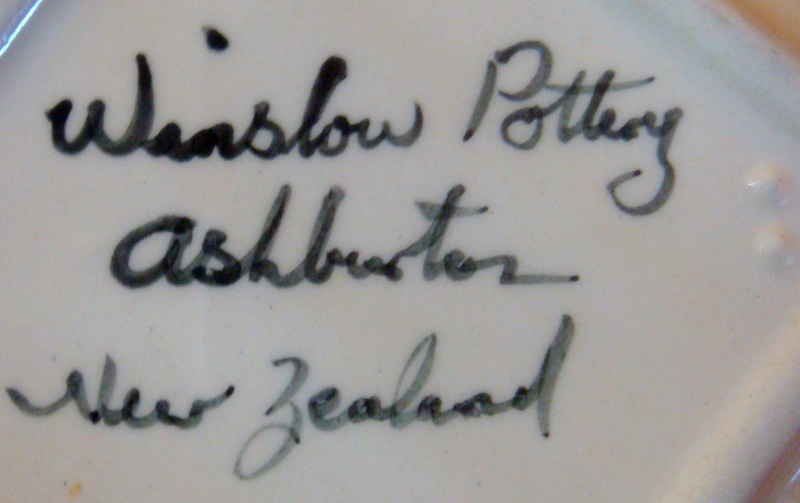 Winslow Pottery
Ashburton
New Zealand